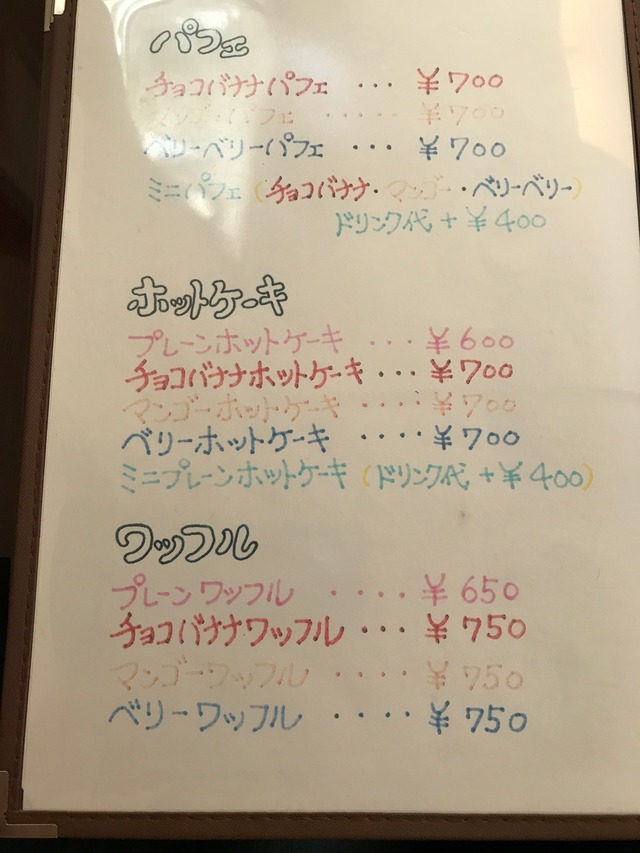 パフェ
チョコバナナパフェ ・・・ ¥700
マンゴーパフェ ・・・・・ ¥700
ベリーベリーパフェ ・・・ ¥700
ミニパフェ(チョコバナナ・マンゴー・ベリーベリー)
ドリンク代+¥400
ホットケーキ
プレーンホットケーキ ・・・ ¥600
チョコバナナホットケーキ・・・ ¥700
マンゴーホットケーキ ・・・・ ¥700
ベリーホットケーキ ・・・・ ¥700
ミニプレーンホットケーキ(ドリンク代+¥400)
ワッフル
プレーンワッフル ・・・・ ¥650
チョコバナナワッフル・・・ ¥750
マンゴーワッフル ・・・・ ¥750
ベリーワッフル ・・・・ ¥750